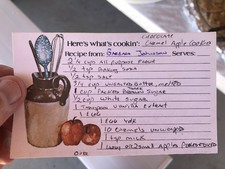 Here's what's cookin': Caramel Apple Cookies
Recipe from: Johnson Serves:
2 1/4 cups all purpose flour
1/2 tsp Baking Soda
1/2 tsp Salt
3/4 cup unsalted butter,
1 cup packed brown sugar
1/2 cup white sugar
1 Tablespoon vanilla extract
1 egg
1 egg yolk
10 caramels unwrapped
1 tsp milk
1 large Apple
Over